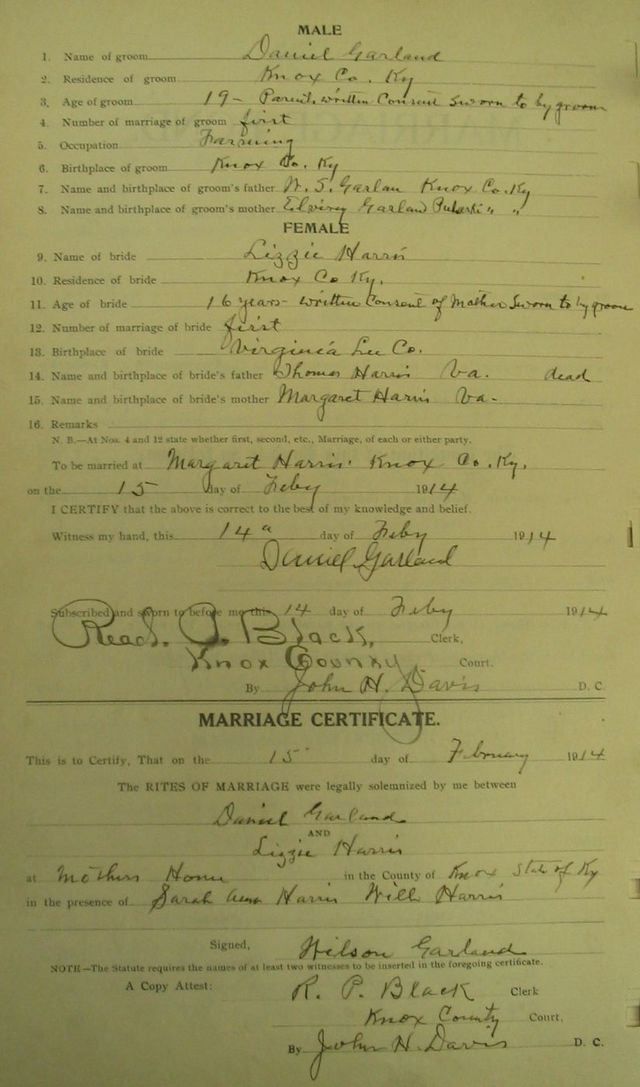 MALE
1. Name of groom Daniel Garland
2. Residence of groom Knox Co. Ky
3. Age of groom 19 - Parents written Consent Sworn to by groom
4. Number of marriage of groom first
5. Occupation Farming
6. Birthplace of groom Knox Co. Ky
7. Name and birthplace of groom's father W. S. Garlan Knox Co. Ky
8. Name and birthplace of groom's mother Garland Pulaski " "
FEMALE
9. Name of bride Lizzie Harris
10. Residence of bride Knox Co Ky.
11. Age of bride 16 years - written Consent of Mother Sworn to by groom
12. Number of marriage of bride first
13. Birthplace of bride Virginia Lee Co.
14. Name and birthplace of bride's father Thomas Harris Va. dead
15. Name and birthplace of bride's mother Margaret Harris Va -
16. Remarks
N. B.—At Nos. 4 and 12 state whether first, second, etc., Marriage, of each or either party.
To be married at Margaret Harris' Knox Co. Ky.
on the 15 day of Feby 1914
I CERTIFY that the above is correct to the best of my knowledge and belief.
Witness my hand, this 14 day of Feby 1914
Daniel Garland
Subscribed and sworn to before me this 14 day of Feby 1914
Read. P. Black, Clerk,
Knox County Court.
By John H. Davis D. C.
MARRIAGE CERTIFICATE.
This is to Certify, That on the 15 day of February 1914
The RITES OF MARRIAGE were legally solemnized by me between
Daniel Garland
AND
Lizzie Harris
at Mothers Home in the County of Knox State of Ky
in the presence of Sarah Ann Harris Will Harris
Signed, Wilson Garland
NOTE—The Statute requires the names of at least two witnesses to be inserted in the foregoing certificate.
A Copy Attest: R. P. Black Clerk
Knox County Court,
By John H. Davis D. C.